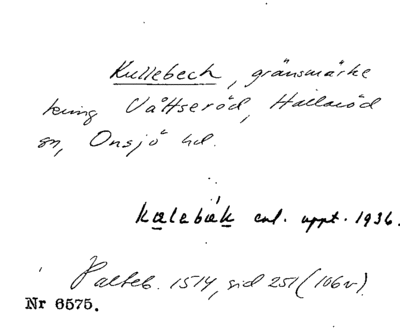 Kullebech, gränsmärke
kring Våttseröd, Hallaröd
sn, Onsjö hd.
kælebæk enl. uppt. 1936.
Palteb. 1514, sid 251 (106v).
Nr 6575.